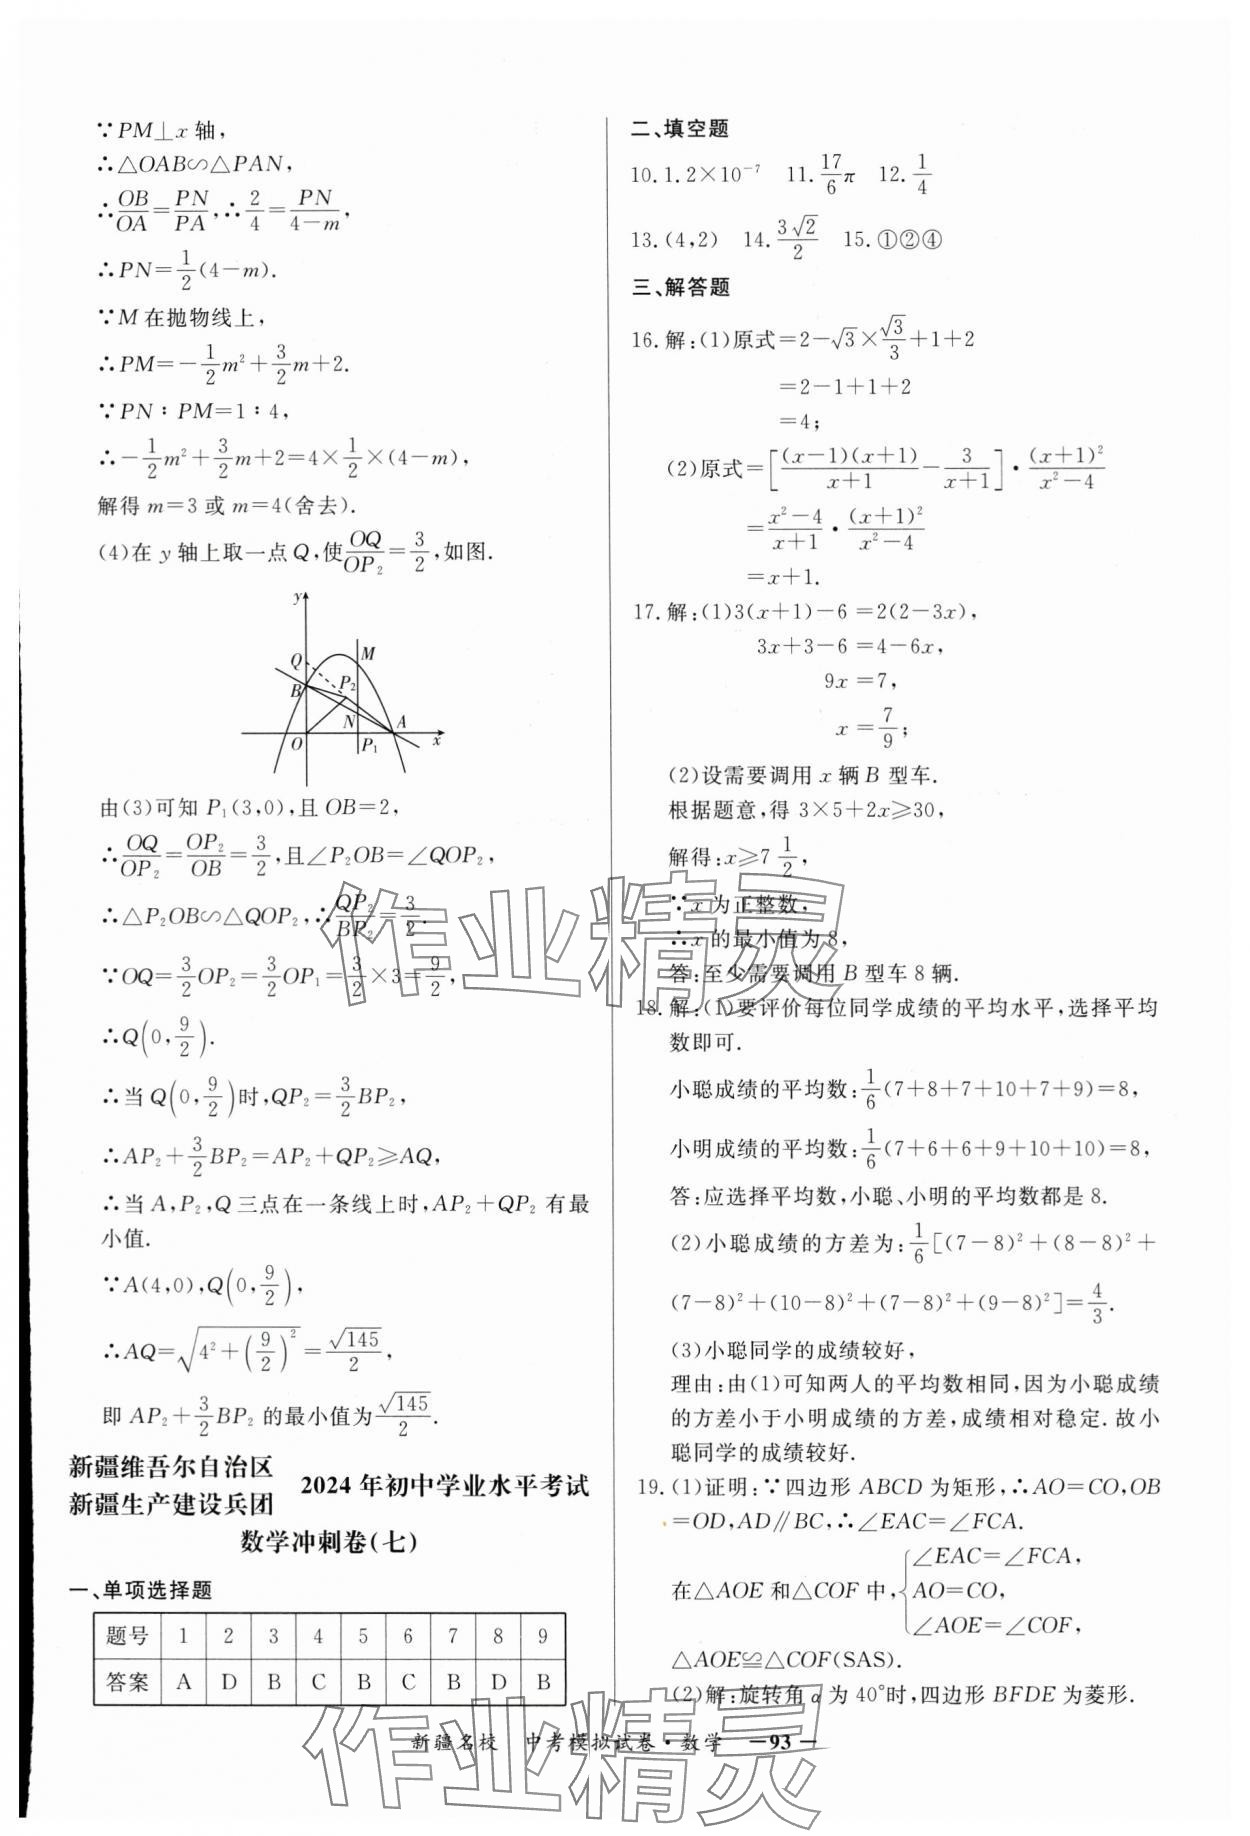 ∵PM⊥x 轴,
∴△OAB∽△PAN,
∴OB/OA=PN/PA,∴2/4=PN/(4-m),
∴PN=1/2(4-m).
∵M 在抛物线上,
∴PM=-1/2m²+3/2m+2.
∵PN∶PM=1∶4,
∴-1/2m²+3/2m+2=4×1/2×(4-m),
解得 m=3 或 m=4(舍去).
(4)在 y 轴上取一点 Q,使OQ/OP₂=3/2,如图.
y
Q
M
B
P₂
N
A
O
P₁
x
由(3)可知 P₁(3,0),且 OB=2,
∴OQ/OP₂=OP₂/OB=3/2,且∠P₂OB=∠QOP₂,
∴△P₂OB∽△QOP₂,∴QP₂/BP₂=3/2.
∵OQ=3/2OP₂=3/2OP₁=3/2×3=9/2,
∴Q(0,9/2).
∴当 Q(0,9/2)时,QP₂=3/2BP₂,
∴AP₂+3/2BP₂=AP₂+QP₂≥AQ,
∴当 A,P₂,Q 三点在一条线上时,AP₂+QP₂ 有最
小值.
∵A(4,0),Q(0,9/2),
∴AQ=√(4²+(9/2)²)=√145/2,
即 AP₂+3/2BP₂ 的最小值为√145/2.
新疆维吾尔自治区
新疆生产建设兵团 2024 年初中学业水平考试
数学冲刺卷(七)
一、单项选择题
题号 1 2 3 4 5 6 7 8 9
答案 A D B C B C B D B
二、填空题
10. 1.2×10⁻⁷ 11. 17/6π 12. 1/4
13. (4,2) 14. 3√2/2 15. ①②④
三、解答题
16. 解:(1)原式=2-√3×√3/3+1+2
=2-1+1+2
=4;
(2)原式=[(x-1)(x+1)/(x+1)-3/(x+1)]·(x+1)²/(x²-4)
=(x²-4)/(x+1)·(x+1)²/(x²-4)
=x+1.
17. 解:(1)3(x+1)-6=2(2-3x),
3x+3-6=4-6x,
9x=7,
x=7/9;
(2)设需要调用 x 辆 B 型车.
根据题意,得 3×5+2x≥30,
解得:x≥7 1/2,
∵x 为正整数,
∴x 的最小值为 8,
答:至少需要调用 B 型车 8 辆.
18. 解:(1)要评价每位同学成绩的平均水平,选择平均
数即可.
小聪成绩的平均数:1/6(7+8+7+10+7+9)=8,
小明成绩的平均数:1/6(7+6+6+9+10+10)=8,
答:应选择平均数,小聪、小明的平均数都是 8.
(2)小聪成绩的方差为:1/6[(7-8)²+(8-8)²+
(7-8)²+(10-8)²+(7-8)²+(9-8)²]=4/3.
(3)小聪同学的成绩较好,
理由:由(1)可知两人的平均数相同,因为小聪成绩
的方差小于小明成绩的方差,成绩相对稳定.故小
聪同学的成绩较好.
19. (1)证明:∵四边形 ABCD 为矩形,∴AO=CO,OB
=OD,AD∥BC,∴∠EAC=∠FCA.
∠EAC=∠FCA,
在△AOE 和△COF 中,{AO=CO,
∠AOE=∠COF,
△AOE≌△COF(SAS).
(2)解:旋转角 α 为 40°时,四边形 BFDE 为菱形.
新疆名校 中考模拟试卷·数学 —93—
作业精灵
作业精灵